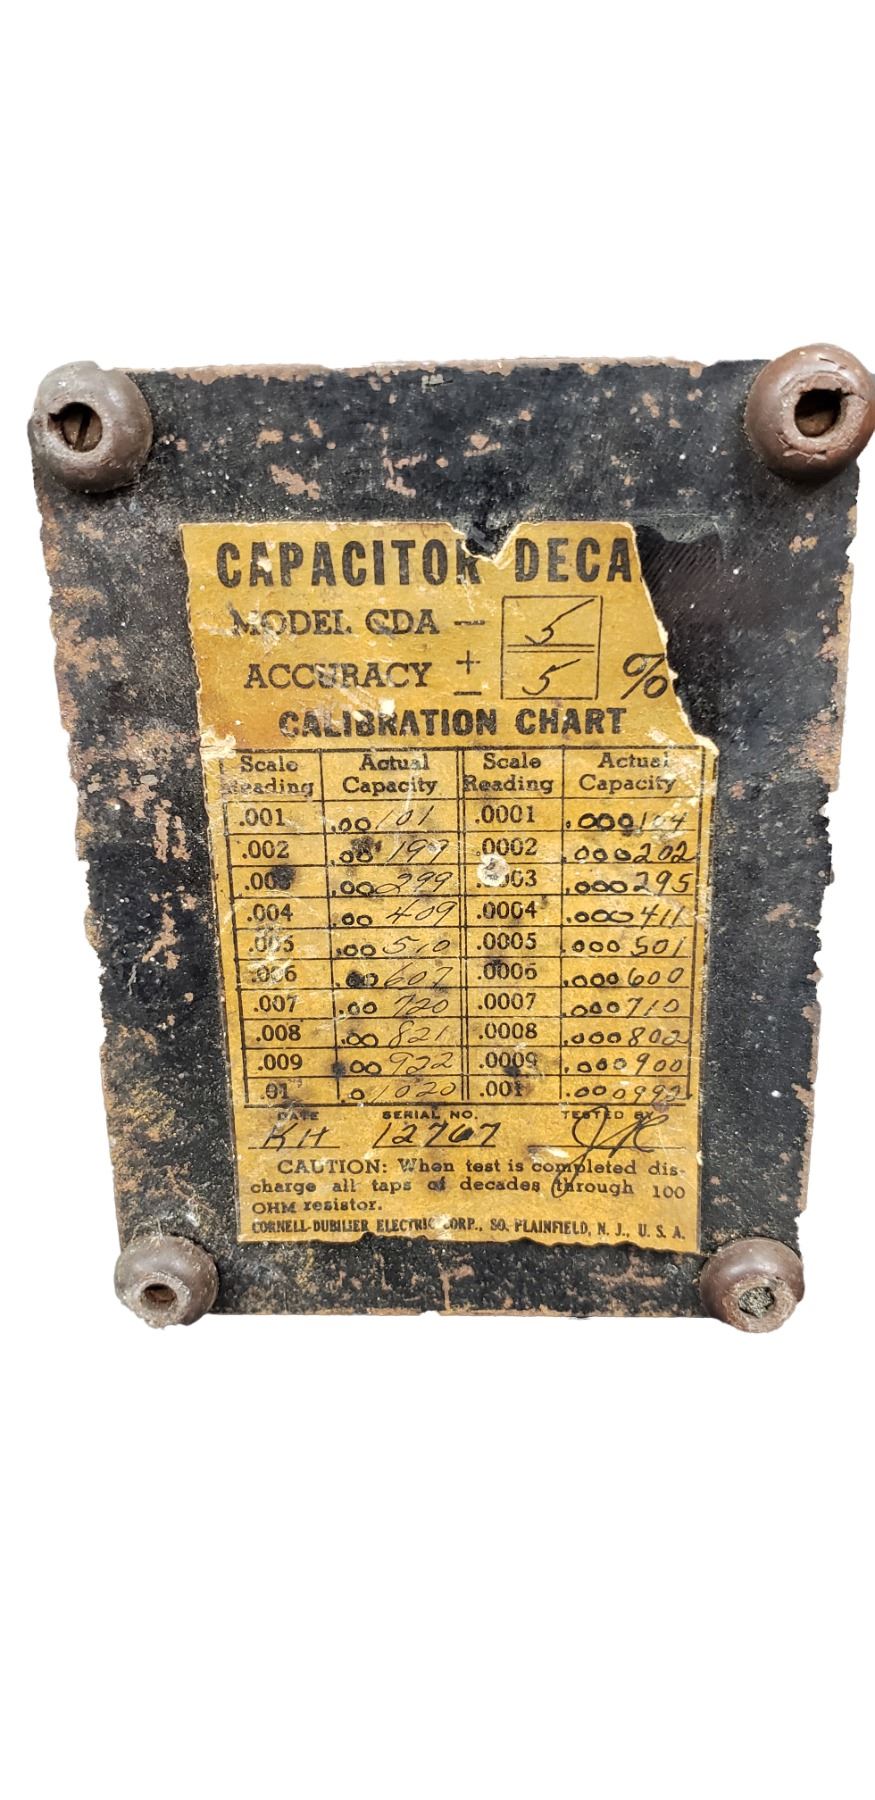 CAPACITOR DECA
MODEL CDA - 5
ACCURACY ± 5 %
CALIBRATION CHART
Scale Reading Actual Capacity Scale Reading Actual Capacity
.001 .00101 .0001 .000104
.002 .00199 .0002 .000202
.003 .00299 .0003 .000295
.004 .00409 .0004 .000411
.005 .00510 .0005 .000501
.006 .00607 .0006 .000600
.007 .00720 .0007 .000710
.008 .00821 .0008 .000802
.009 .00922 .0009 .000900
.01 .01020 .001 .000992
DATE SERIAL NO. TESTED BY
KH 12767
CAUTION: When test is completed dis-
charge all taps of decades through 100
OHM resistor.
CORNELL-DUBILIER ELECTRIC CORP., SO. PLAINFIELD, N. J., U. S. A.